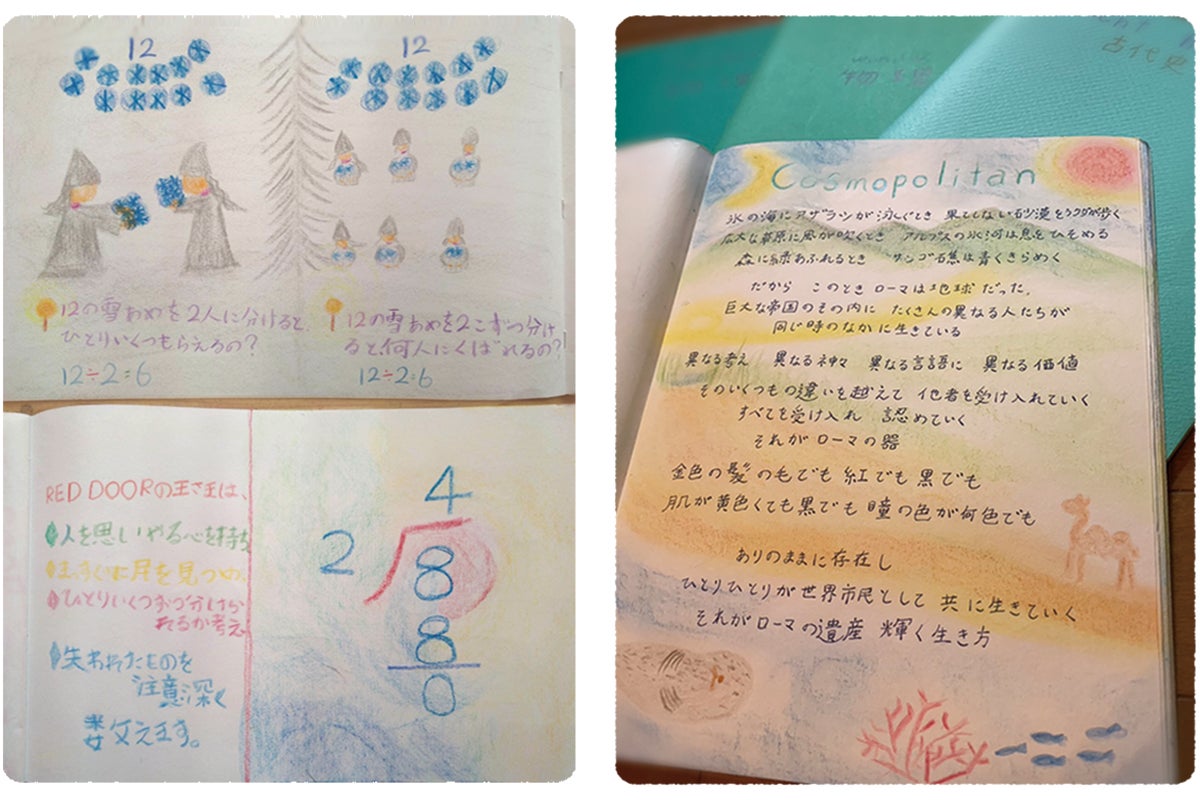 12
12
12の雪あめを2人に分けると、
ひとりいくつもらえるの?
12÷2=6
12の雪あめを2こずつ分け
ると、何人にくばれるの?
12÷2=6
RED DOORの王さまは、
人を思いやる心を持ち
まっすぐに を見つめ、
ひとりいくつずつ分けら
れるか考え
失われたものを
注意深く
数えます。
4
2 8
8
0
古代史
Cosmopolitan
氷の海にアザラシが泳ぐとき 果てしない砂漠をラクダが歩く
広大な草原に風が吹くとき アルプスの氷河は息をひそめる
森に緑あふれるとき サンゴ礁は青くきらめく
だから このとき ローマは地球だった。
巨大な帝国のその内に たくさんの異なる人たちが
同じ時のなかに生きている
異なる考え 異なる神々 異なる言語に 異なる価値
そのいくつもの違いを越えて 他者を受け入れていく
すべてを受け入れ 認めていく
それがローマの器
金色の髪の毛でも 紅でも 黒でも
肌が黄色くても黒でも 瞳の色が何色でも
ありのままに存在し
ひとりひとりが世界市民として 共に生きていく
それがローマの遺産 輝く生き方